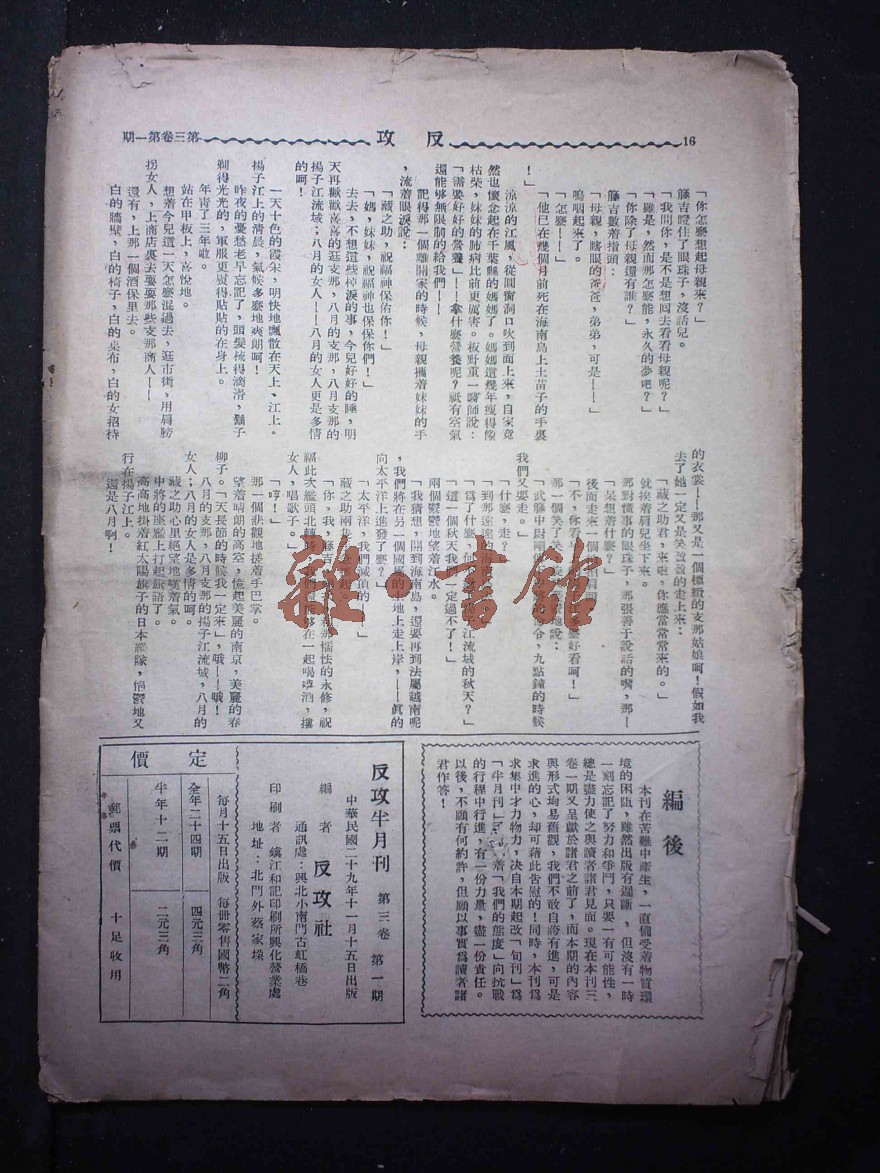 16
反攻
第三卷第一期
「你怎麼想起母親來？」
籐吉瞪住了眼珠子，沒話兒。
「我問你，是不是想囘去看看母親呢？」
「雖是，然而那怎麼能，永久的夢吧？」
「你除了母親還有誰？」
籐吉數着指頭：
「母親，瞎眼的爸爸，弟弟，可是——」
嗚咽起來了。
「怎麼——」
「他已在幾個月前死在海南島上土苗子的手裏
！」
涼涼的江風，從圓窗洞口吹到面上來，自家竟
然也懷念起在千葉縣的媽媽了。媽媽這幾年瘦得像
枯柴，妹妹的肺病比前更厲害。板野重一醫師說：
「需要好好的營養」——拿什麼營養呢？祇有空氣
還能够無限制的給我們——
記得那一個離開家的時候，母親攜着妹妹的手
，流着眼淚說：
「藏之助，祝福神保佑你！」
「媽，妹妹，祝福神也保保你們！」
去去，不想這些悼淚的事，今兒好好的睡，明
天再歡歡喜喜的逛支那，八月的支那，八月支那的
揚子江流域；八月的女人——八月的女人更是多情
的呵！
一天十色的霞朵，明快地飄散在天上、江上。
揚子江上的清晨，氣候多麼地爽朗呵！
昨夜的憂愁老早忘記了，頭髮梳得滴滑，鬍子
剃得光光的，軍服更熨得貼貼的在身上。
年青了三年啦。
站在甲板上，喜悅地。
想着今兒這一天怎麼混過去，逛市街，用肩膀
拐女人，上商店裏去耍耍那些支那商人——
還有，上那一個酒保里去。
白的牆壁，白的椅子，白的桌布，白的女招待
的衣裳——那又是一個標緻的支那姑娘呵！假如我
去了她一定又是笑盈盈的走上來：
「藏之助君，來來，你應當常常來的。」
就挨着肩兒坐下來。
那對懂事的眼珠子，那張善于說話的嘴，那—
「呆想着什麼？」
後面走來一個
「不，你看 麼好看呵！」
那一個笑了笑 地說：
「武籐中尉剛 命令，九點鐘的時候
我們又要走。」
「什麼，走？
「到那遙遠 海
「爲了什麼，何 子江流域的秋天？」
「這一個秋天我 定過不了！」
兩個鬱鬱地望着江水。
「我猜想，開到海南島，還要再到法屬越南呢
，我們將在另一個國度的土地上走上岸，——眞的
向太平洋上進發了麼？」
「太平洋，我們 的
藏之助兩
「你，我，籐吉 那懦怯的永修，祝
福此次艦頭北轉 够在一起喝喝酒，摟
女人，唱歌子。」
「哼！」
那一個悲觀地搓着手巴掌。
望着晴朗的高空，憶起美麗的南京，美麗的春
柳子。「天長節的時候我一定來」，哦——哦！
八月的支那，八月支那的揚子江流域，八月的
女人；八月的女人是多情的呵。
藏之助心里絕望地嘆着氣。
中將的座艦上打起旗語了。
高高地掛着紅太陽旗子的日本艦隊，悒鬱地又
行在揚子江上。
還是八月啊！
編後
本刊在苦難中產生，一直備受着物質環
境的困阨，雖然出版有遲斷，但沒有一時
一刻忘記了努力和爭鬥，只要一有可能性，
總是盡力使之與讀者諸君見面。現在本刊三
卷一期又呈獻於諸君之前了，而本期的內容
與形式均易舊觀，我們不敢自誇有進，可是
求進的心，却可藉此告慰的！同時，本刊爲
求集中才力物力，决自本期起改「旬刊」爲
「半月刊」， 着「我們的態度」向抗戰
的行程中行進，有一份力量，盡一份責任。
以後，不願有何約許，但願以事實爲讀者諸
君作答！
反攻半月刊 第三卷 第一期
中華民國二十九年十一月十五日出版
編者 反攻社
通訊處：興北小南門古虹橋巷
印刷者 鎮江和記印刷所興化營業處
地址：北門外蔡家垛
定價
每月十五日出版 每冊零售國幣二角
全年二十四期 四元三角
半年十二期 二元三角
郵票代價 十足收用
雜·書館